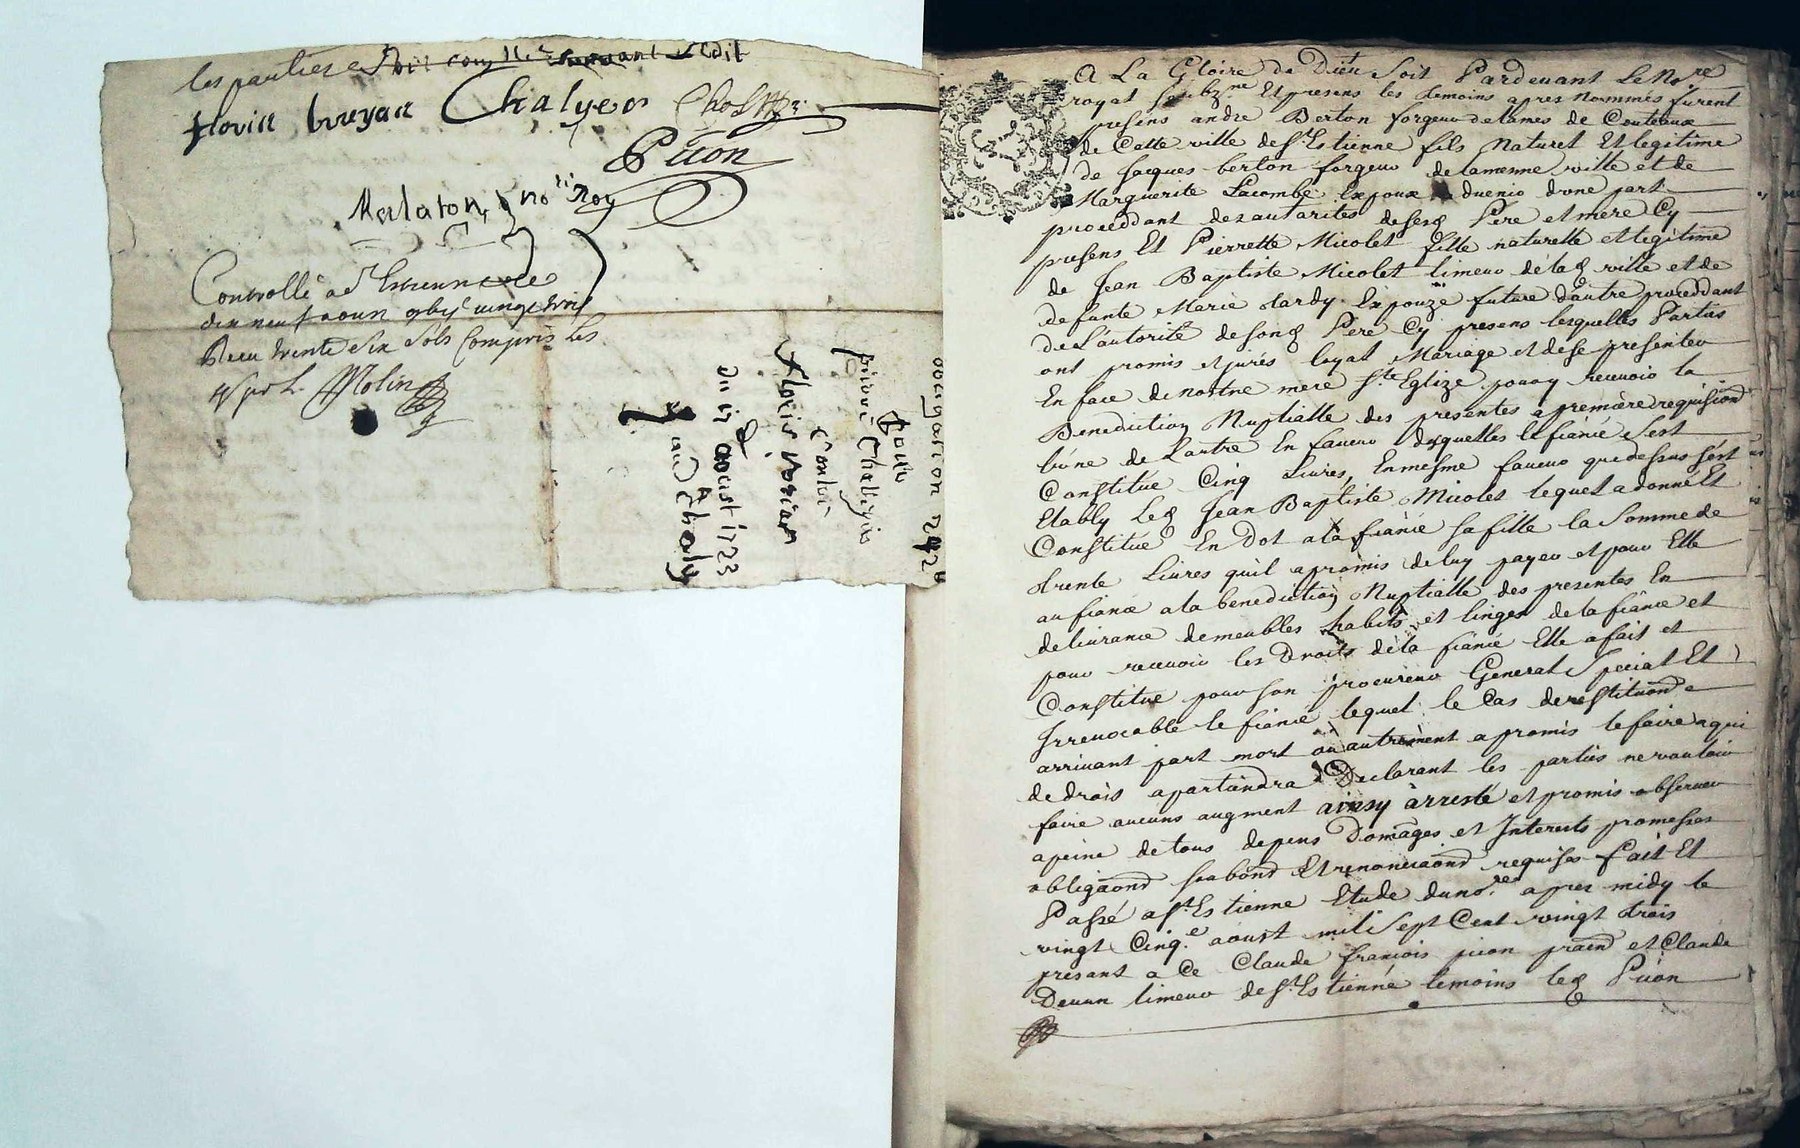 les parties et
floria Chalyeos
Picon
no.re Roy
Controllé a St Estienne le
dix neuf aoust vingt trois
Receu trente six sols compris les
Molin
obligation
pour
pierre
contre
floris
du 19 aoust 1723
A La Gloire de Dieu Soit Pardevant Le No.re
royal soubz.ne Et presens les temoins apres nommés furent
presens andre Berton forgeur de lames de Couteaux
de Cette ville de St Estienne fils Naturel Et legitime
de Jacques berton forgeur de lamesme ville et de
Marguerite Lacombe Expoux a duenir dune part
proceddant des autorites de sesd Pere et mere Cy
presens Et Pierrette Micolet fille naturelle et legitime
de Jean Baptiste Micolet limeur de lad ville et de
defunte Marie tardy Expouze future d'autre proceddant
de L'autorité de sond Pere Cy presens lesquelles Parties
ont promis et jurés loyal Mariage et de se presenter
En face de nostre mere Ste Eglize pour recevoir la
Benediction Nuptialle des presentes a premiere requisiond
lune de Lautre En faveur desquelles le fiancé sest
Constitué Cinq Livres, En mesme faveur que dessus sest
Etably Led Jean Baptiste Micolet lequel a donné Et
Constitué En Dot a la fiancé sa fille la Somme de
trente Livres quil a promis de luy payer et pour Elle
au fiancé a la benediction Nuptialle des presentes En
delivrance de meubles habits et linges de la fiancé et
pour recevoir les Droits de la fiancé Elle a fait et
Constitué pour son procureur General Special Et
Irrevocable le fiancé lequel le Cas de restituond
arrivant part mort ou autrement a promis le faire a qui
de drois apartiendra Declarant les parties ne vouloir
faire aucuns augment ainsy arresté et promis observer
a peine de tous depens Domages et Interests promesses
obligaond Et renonciaond requises fait Et
Passé a St Estienne Etude du no.re apres midy le
vingt Cinq.e aoust mil Sept Cent vingt trois
presant a Ce Claude francois picon et Claude
limeur de St Estienne temoins led Picon